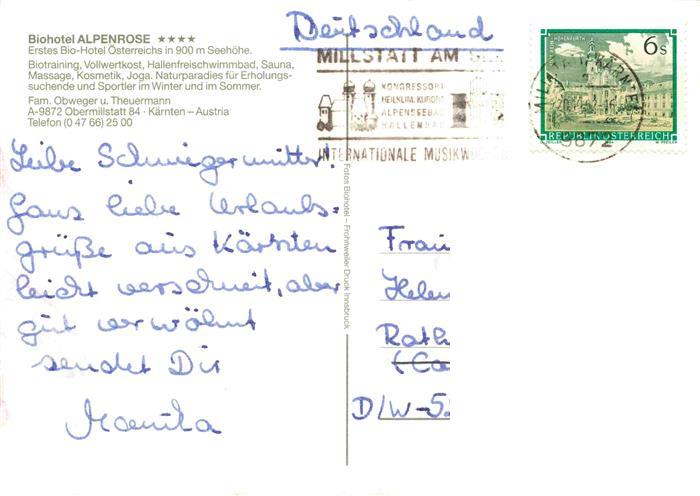 Biohotel ALPENROSE ★★★★
Erstes Bio-Hotel Österreichs in 900 m Seehöhe.
Biotraining, Vollwertkost, Hallenfreischwimmbad, Sauna,
Massage, Kosmetik, Joga. Naturparadies für Erholungs-
suchende und Sportler im Winter und im Sommer.
Fam. Obweger u. Theuermann
A-9872 Obermillstatt 84 · Kärnten – Austria
Telefon (0 47 66) 25 00
Deutschland
MILLSTATT AM
KONGRESSORT
HEILKLIMA.KURORT
ALPENSEEBAD
HALLENBAD
INTERNATIONALE MUSIKWOCHEN
6s
REPUBLIK ÖSTERREICH
9872
Leibe Schwiegermutter!
Ganz liebe Urlaubs=
grüße aus Kärnten
leicht verschneit, aber
gut verwöhnt
sendet Dir
Monika
Fotos Biohotel – Frohnweiler Druck Innsbruck
Frau
Helen
Rath
(Ca
D/W-5